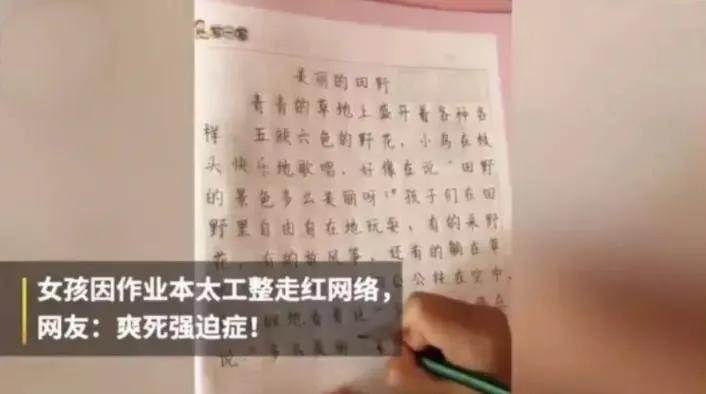 写一写
美丽的田野
青青的草地上盛开着各种各
样、五颜六色的野花，小鸟在枝
头快乐地歌唱，好像在说“田野
的景色多么美丽呀！”孩子们在田
野里自由自在地玩耍，有的采野
花，有的放风筝，还有的躺在草
公公挂在空中，
眯眯地看着这
说：“多么美
女孩因作业本太工整走红网络，
网友：爽死强迫症！